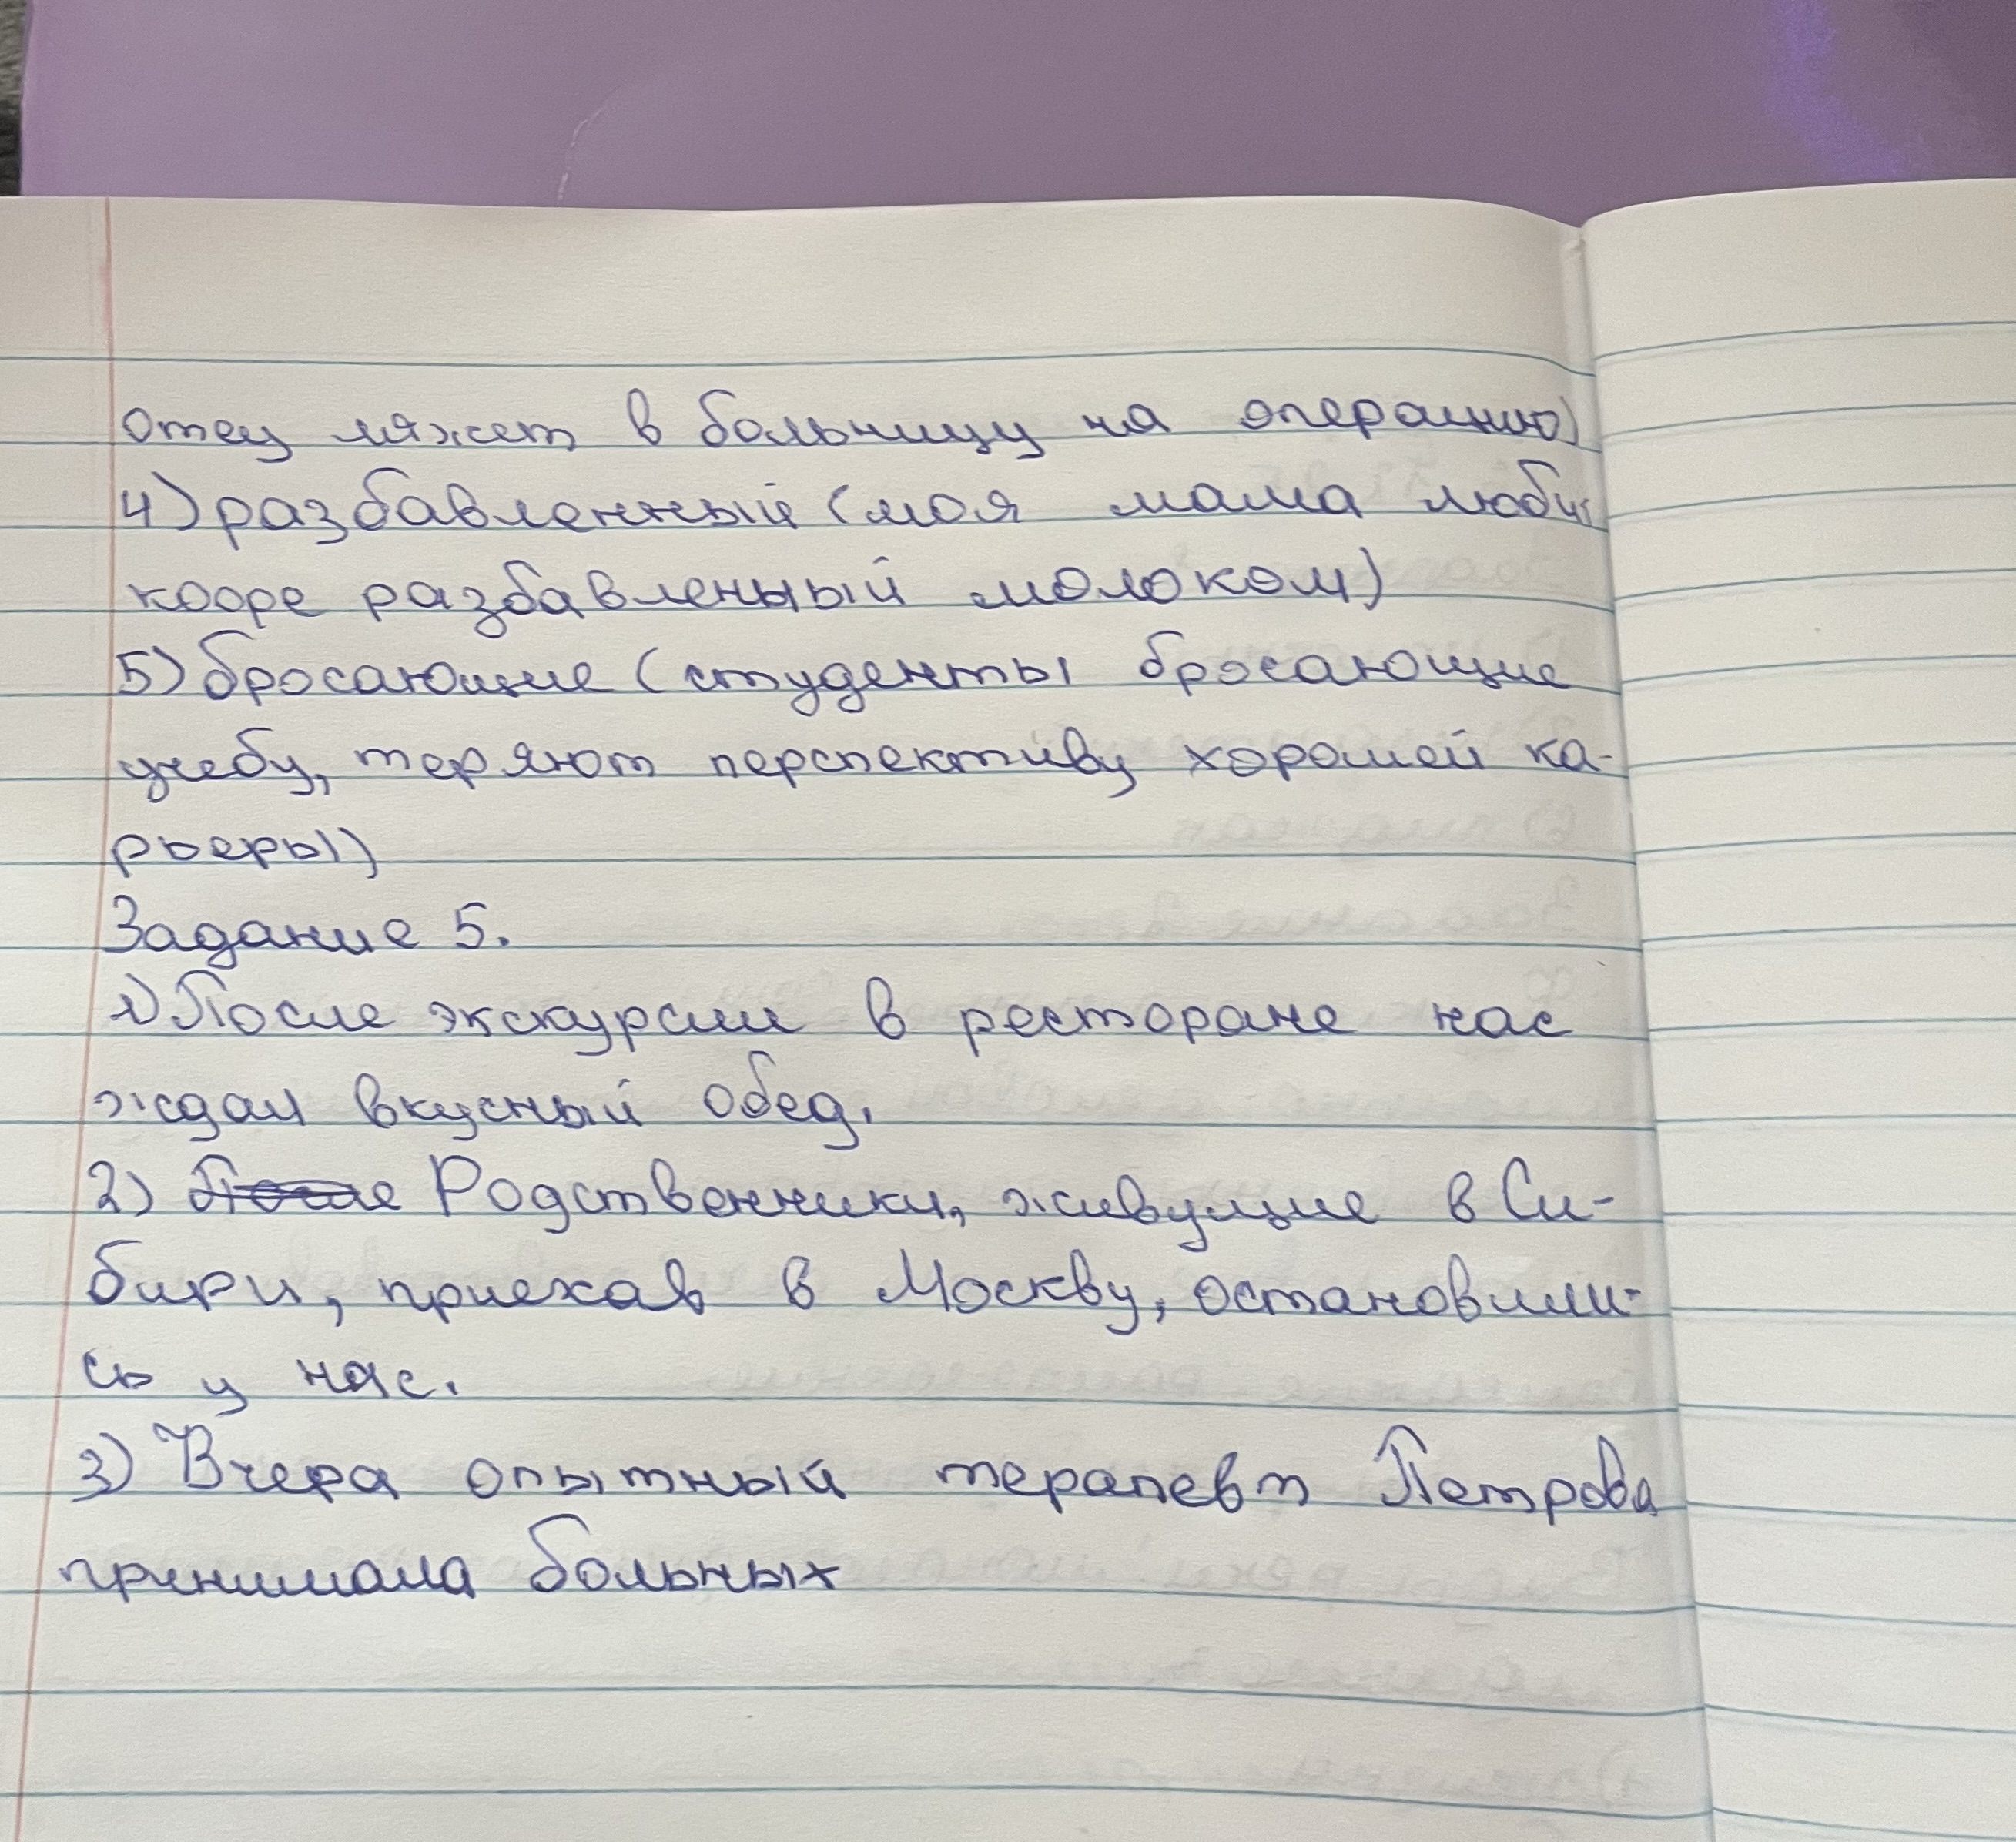 отец ляжет в больницу на операцию)
4) разбавленный (моя мама люби
кофе разбавленый молоком)
5) бросающие (студенты бросающие
учебу, теряют перспективу хорошей ка-
рьеры))
Задание 5.
1) После экскурсии в ресторане нас
ждал вкусный обед.
2) После Родственники, живущие в Си-
бири, приехав в Москву, остановили-
сь у нас.
3) Вчера опытный терапевт Петрова
принимала больных